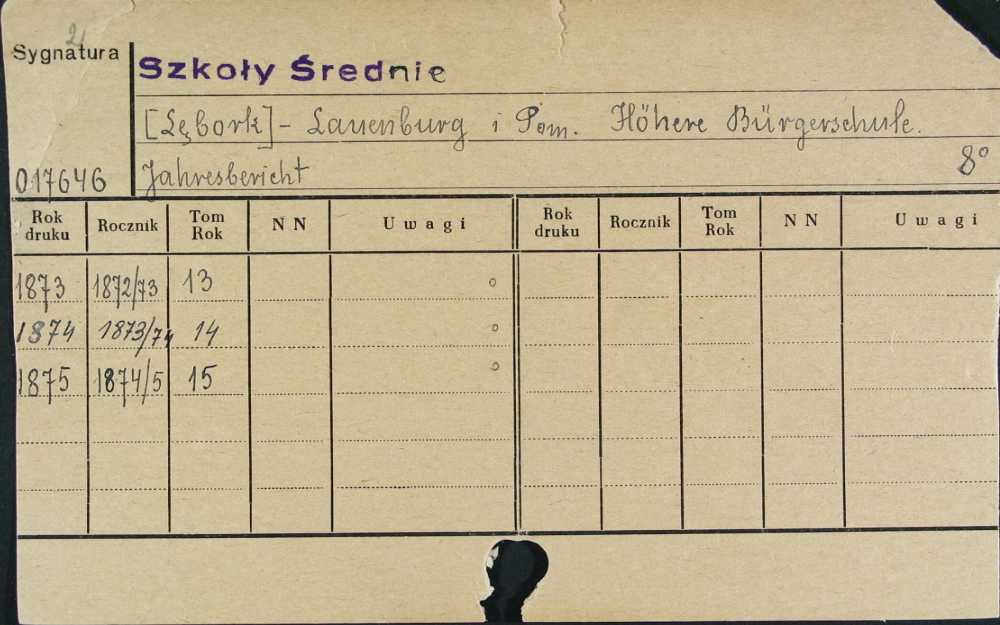 2
Sygnatura
Szkoły Średnie
[Lębork] - Lauenburg i Pom. Höhere Bürgerschule.
017646 Jahresbericht 8°
Rok druku Rocznik Tom Rok N N Uwagi Rok druku Rocznik Tom Rok N N Uwagi
1873 1872/73 13 o
1874 1873/74 14 o
1875 1874/5 15 o